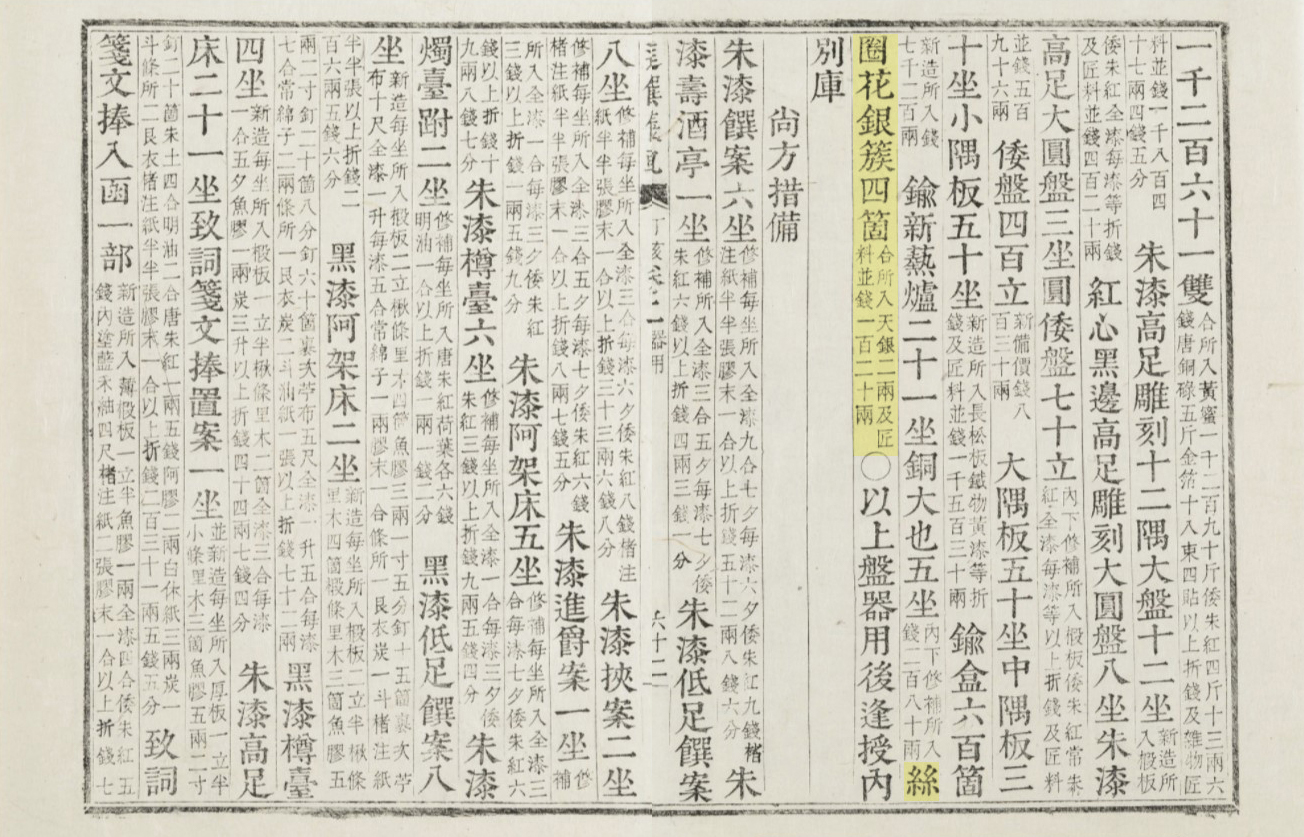 一千二百六十一雙合所入黃蜜一千二百九十斤倭朱紅四斤十三兩六錢唐銅碌五斤金箔十入束四貼以上折錢及雜物匠
料並錢一千八百四十七兩四錢五分朱漆高足雕刻十二隅大盤十二坐新造所入椴板
倭朱紅全漆每漆等折錢及匠料並錢四百二十兩紅心黑邊高足雕刻大圓盤八坐朱漆
高足大圓盤三坐圓倭盤七十立內下修補所入椴板倭朱紅常漆紅全漆每漆等以上折錢及匠料
並錢五百九十六兩倭盤四百立新備價錢八百三十兩大隅板五十坐中隅板三
十坐小隅板五十坐新造所入長松板鐵物黃漆等折錢及匠料並錢一千五百三十兩鍮盒六百箇
新造所入錢七千二百兩鍮新熱爐二十一坐銅大也五坐內下修補所入錢二百八十兩絲
圈花銀簇四箇合所入天銀二兩及匠料並錢一百二十兩○以上盤器用後逢授內
別庫
尙方措備
朱漆饌案六坐修補每坐所入全漆九合七夕每漆六夕倭朱紅九錢楮注紙半半張膠末一合以上折錢五十二兩八錢六分朱
漆壽酒亭一坐修補所入全漆三合五夕每漆七夕倭朱紅六錢以上折錢四兩三錢一分朱漆低足饌案
卷之二 器用 六十二
八坐修補每坐所入全漆三合每漆六夕倭朱紅八錢楮注紙半半張膠末一合以上折錢三十三兩六錢八分朱漆挾案二坐
修補每坐所入全漆三合五夕每漆七夕倭朱紅六錢楮注紙半半張膠末一合以上折錢八兩七錢五分朱漆進爵案一坐修補
所入全漆一合每漆三夕倭朱紅三錢以上折錢一兩五錢九分朱漆阿架床五坐修補每坐所入全漆三合每漆七夕倭朱紅六
錢以上折錢十九兩八錢七分朱漆樽臺六坐修補每坐所入全漆一合每漆三夕倭朱紅三錢以上折錢九兩五錢四分朱漆
燭臺跗二坐修補每坐所入唐朱紅荷葉各六錢明油一合以上折錢一兩一錢二分黑漆低足饌案八
坐新造每坐所入椴板二立楸條里木四箇魚膠三兩一寸五分釘十五箇裹次苧布十尺全漆一升每漆五合常綿子一兩膠末一合條所一艮衣炭一斗楮注紙
半半張以上折錢二百六兩五錢六分黑漆阿架床二坐新造每坐所入椴板二立半楸條里木四箇椴條里木三箇魚膠五
兩二寸釘二十箇八分釘六十箇裹次苧布五尺全漆一升五合每漆七合常綿子二兩條所一艮衣炭二斗油紙一張以上折錢七十二兩黑漆樽臺
四坐新造每坐所入椴板一立半楸條里木二箇全漆三合每漆一合五夕魚膠一兩炭三升以上折錢四十四兩七錢四分朱漆高足
床二十一坐致詞箋文捧置案一坐並新造每坐所入厚板一立半小條里木三箇魚膠五兩二寸
釘二十箇朱土四合明油二合唐朱紅一兩五錢阿膠二兩白休紙三兩炭一斗條所二艮衣楮注紙半半張膠末一合以上折錢二百三十一兩五錢五分致詞
箋文捧入函一部新造所入薄椴板一立半魚膠一兩全漆四合倭朱紅五錢內塗藍禾油四尺楮注紙二張膠末一合以上折錢七